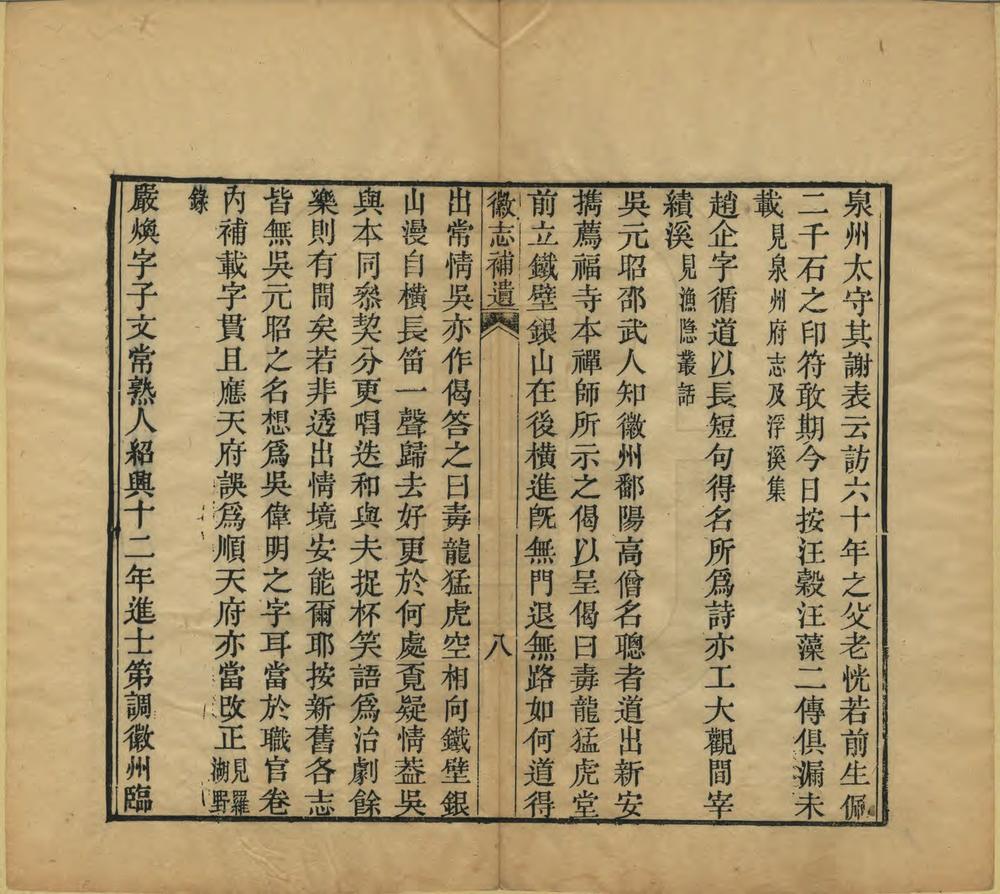 泉州太守其謝表云訪六十年之父老恍若前生佩
二千石之印符敢期今日按汪穀汪藻二傳俱漏未
載見泉州府志及浮溪集
趙企字循道以長短句得名所爲詩亦工大觀間宰
績溪見漁隐叢話
吳元昭邵武人知徽州鄱陽高僧名聰者道出新安
携薦福寺本禪師所示之偈以呈偈曰毒龍猛虎堂
前立鐵壁銀山在後横進旣無門退無路如何道得
徽志補遺 八
出常情吳亦作偈答之曰毒龍猛虎空相向鐵壁銀
山漫自横長笛一聲歸去好更於何處覔疑情葢吳
與本同叅契分更唱迭和與夫捉杯笑語爲治劇餘
樂則有間矣若非透出情境安能爾耶按新舊各志
皆無吳元昭之名想爲吳偉明之字耳當於職官卷
內補載字貫且應天府誤爲順天府亦當改正見羅湖野
錄
嚴煥字子文常熟人紹興十二年進士第調徽州臨